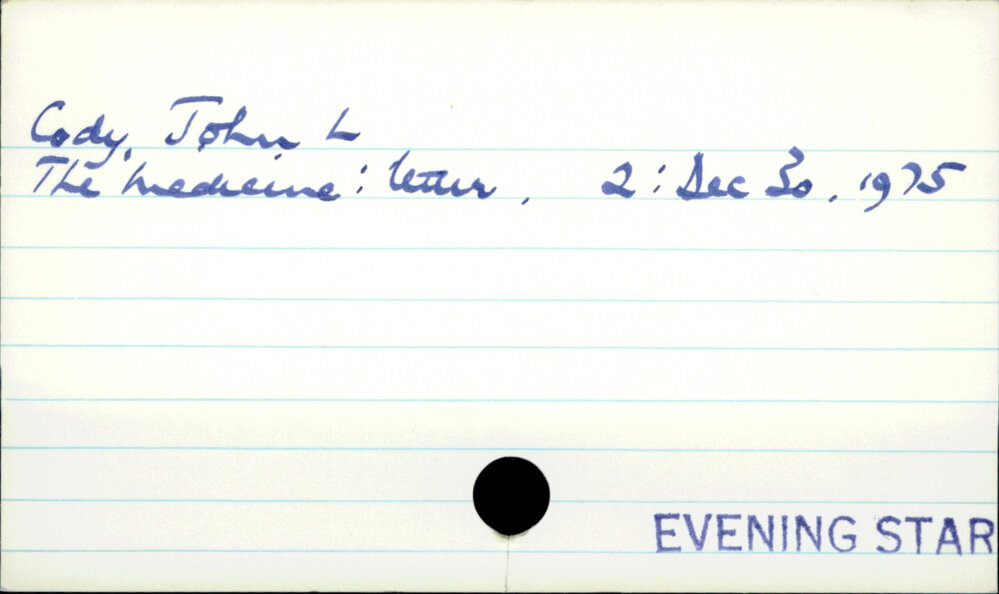 Cody, John L
The medicine : letter, 2 : Dec 30, 1975
EVENING STAR